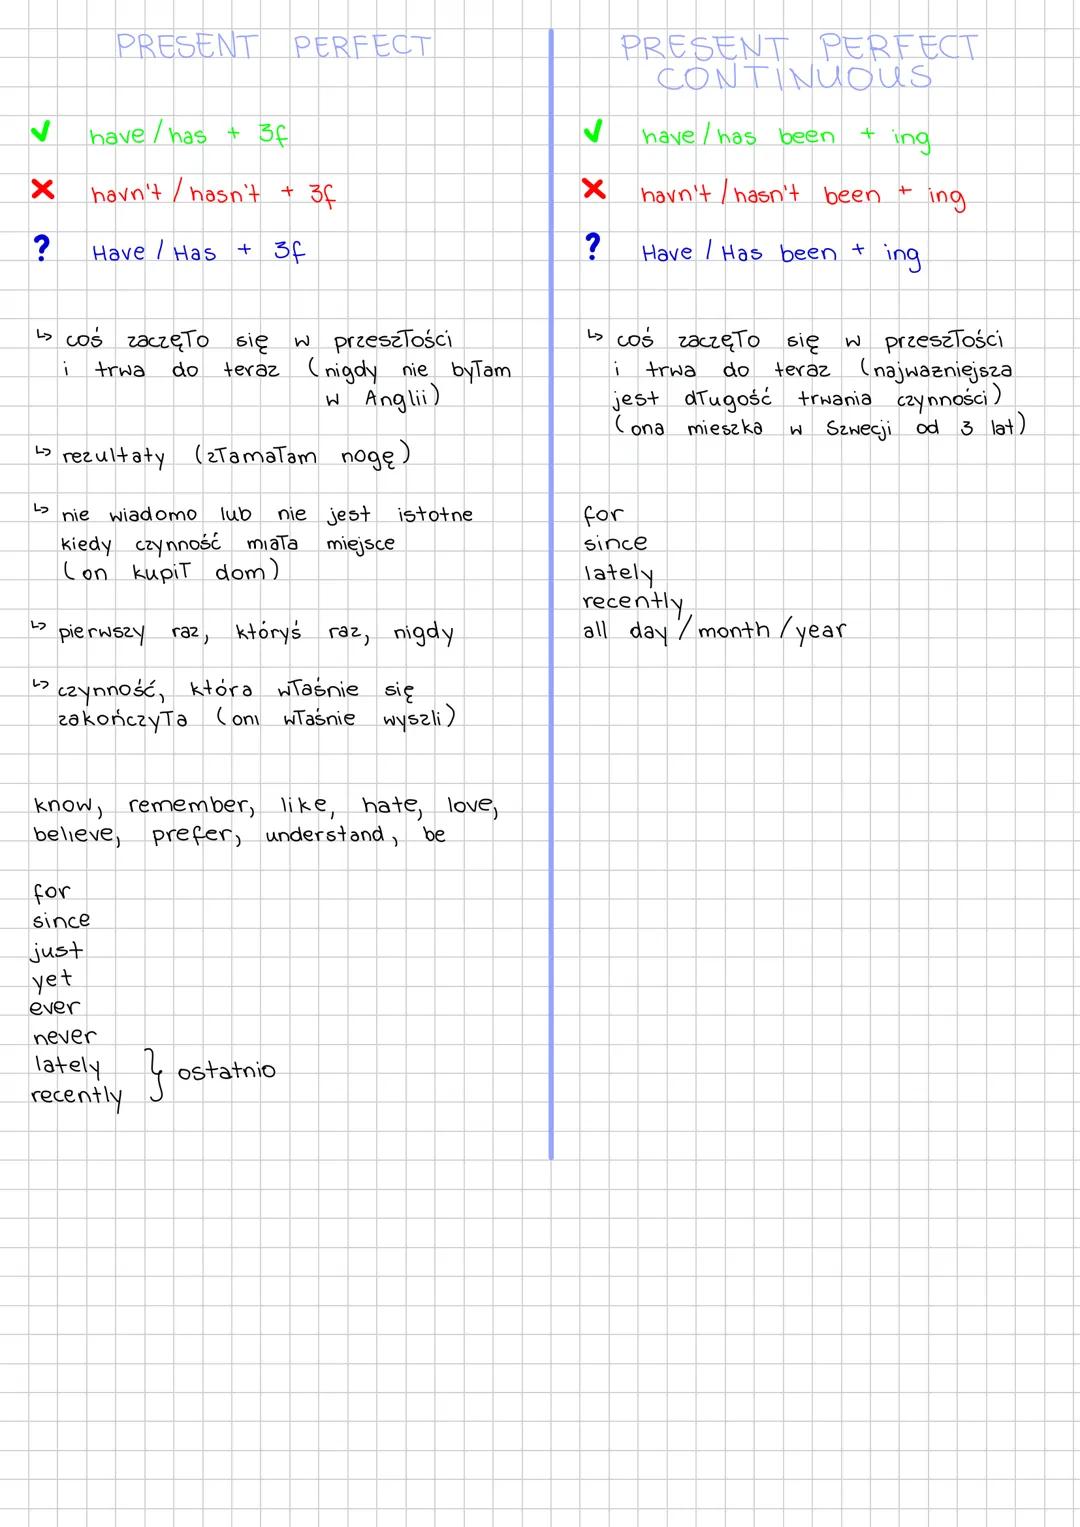 PRESENT PERFECT
✔ have / has + 3f
✗ havn't / hasn't + 3f
? Have / Has + 3f
↳ coś zaczęło się w przeszłości
i trwa do teraz (nigdy nie byłam
w Anglii)
↳ rezultaty (złamałam nogę)
↳ nie wiadomo lub nie jest istotne
kiedy czynność miała miejsce
(on kupił dom)
↳ pierwszy raz, któryś raz, nigdy
↳ czynność, która właśnie się
zakończyła (oni właśnie wyszli)
know, remember, like, hate, love,
believe, prefer, understand, be
for
since
just
yet
ever
never
lately
recently } ostatnio
PRESENT PERFECT
CONTINUOUS
✔ have / has been + ing
✗ havn't / hasn't been + ing
? Have / Has been + ing
↳ coś zaczęło się w przeszłości
i trwa do teraz (najwazniejsza
jest długość trwania czynności)
(ona mieszka w Szwecji od 3 lat)
for
since
lately
recently
all day / month / year